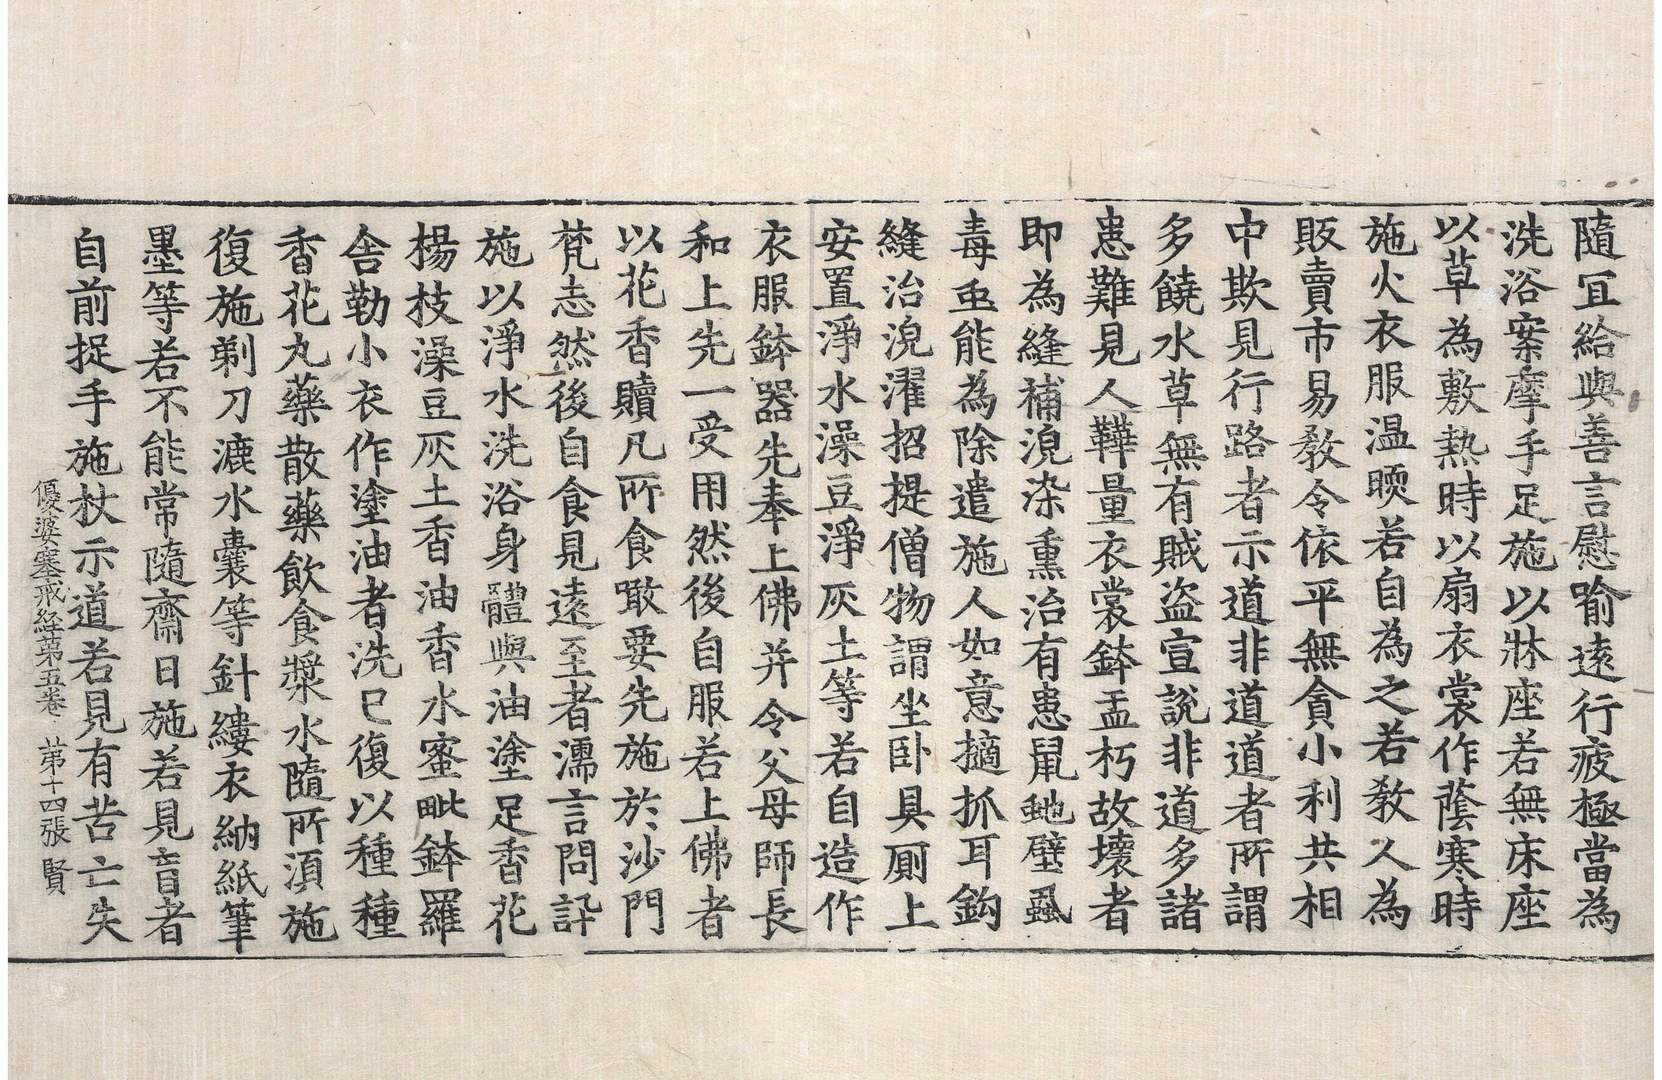 隨冝給與善言慰喻遠行疲極當為
洗浴案摩手足施以牀座若無床座
以草為敷熱時以扇衣裳作蔭寒時
施火衣服温暖若自為之若教人為
販賣市易教令依平無貪小利共相
中欺見行路者示道非道道者所謂
多饒水草無有賊盜宣說非道多諸
患難見人鞾量衣裳鉢盂朽故壞者
即為縫補浣染熏治有患鼠虵壁虱
毒䖝能為除遣施人如意擿抓耳鈎
縫治浣濯招提僧物謂坐卧具厠上
安置淨水澡豆淨灰土等若自造作
衣服鉢器先奉上佛并令父母師長
和上先一受用然後自服若上佛者
以花香贖凡所食噉要先施於沙門
梵志然後自食見遠至者濡言問訊
施以淨水洗浴身體與油塗足香花
楊枝澡豆灰土香油香水蜜毗鉢羅
舍勒小衣作塗油者洗已復以種種
香花丸藥散藥飲食漿水隨所須施
復施剃刀漉水囊等針縷衣納紙筆
墨等若不能常隨齋日施若見盲者
自前捉手施杖示道若見有苦亡失
優婆塞戒経第五卷 第十四張 賢